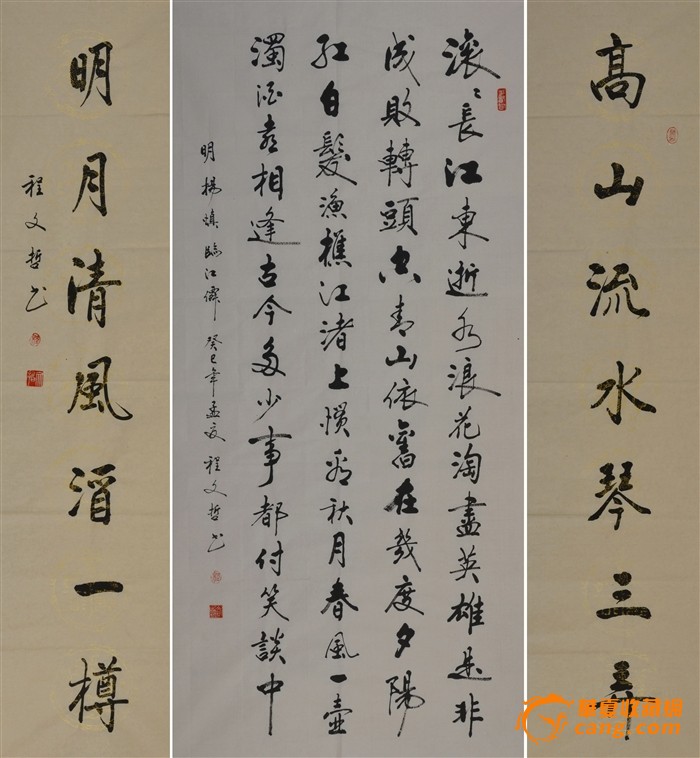 高山流水琴三弄
滚々長江東逝水浪花淘盡英雄是非
成敗轉頭空青山依舊在幾度夕陽
红白髮漁樵江渚上慣看秋月春風一壺
濁酒喜相逢古今多少事都付笑談中
明楊慎臨江僊 癸巳年孟夏 程文哲书
明月清風酒一樽
程文哲书
華夏收藏網
cang.com